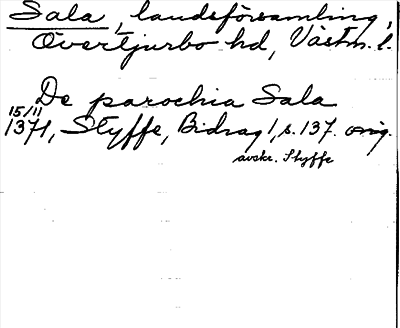 Sala, landsförsamling,
Övertjurbo hd, Västm. l.
De parochia Sala
15/11
1371, Styffe, Bidrag 1, s. 137. orig.
avskr. Styffe